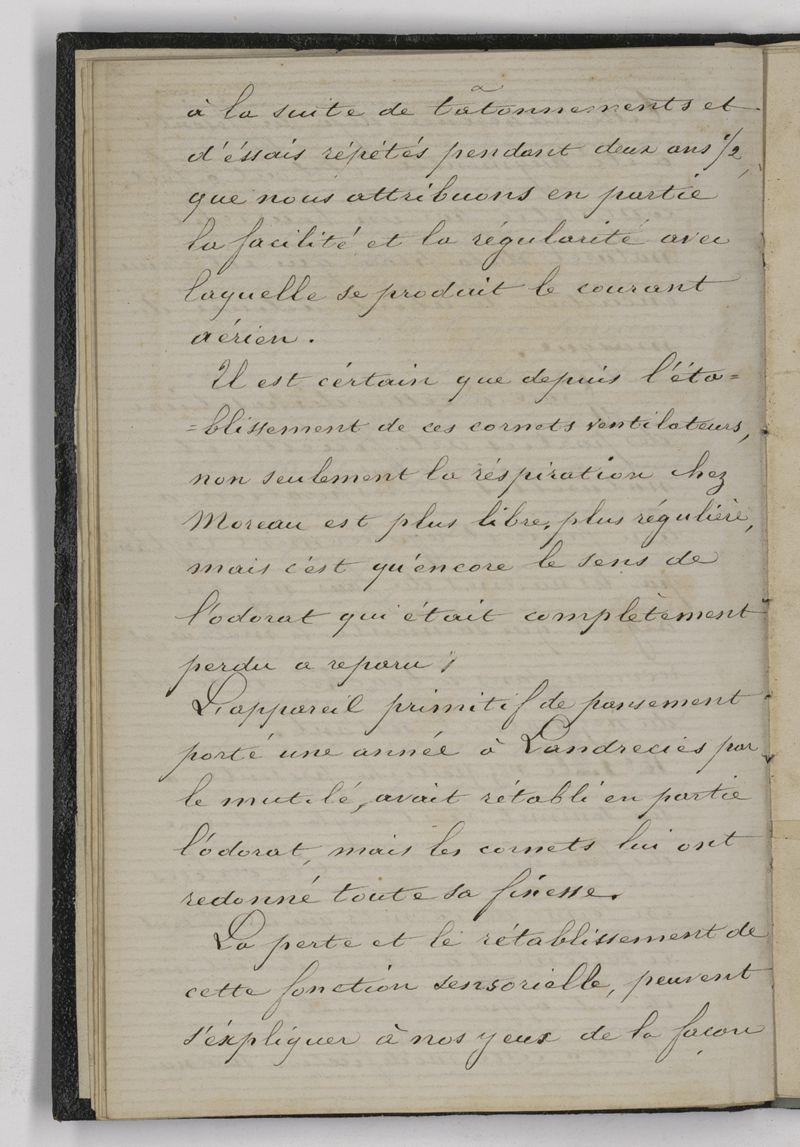 à la suite de tâtonnements et
d'éssais répétés pendant deux ans 1/2,
que nous attribuons en partie
la facilité et la régularité avec
laquelle se produit le courant
aérien.
Il est cértain que depuis l'éta=
=blissement de ces cornets ventilateurs,
non seulement la réspiration chez
Moreau est plus libre, plus régulière,
mais c'est qu'encore le sens de
l'odorat qui était complètement
perdu a reparu;
L'appareil primitif de pansement
porté une année à Landrecies par
le mutilé, avait rétabli en partie
l'odorat, mais les cornets lui ont
redonné toute sa finesse.
La perte et le rétablissement de
cette fonction sensorielle, peuvent
s'éxpliquer à nos yeux de la façon